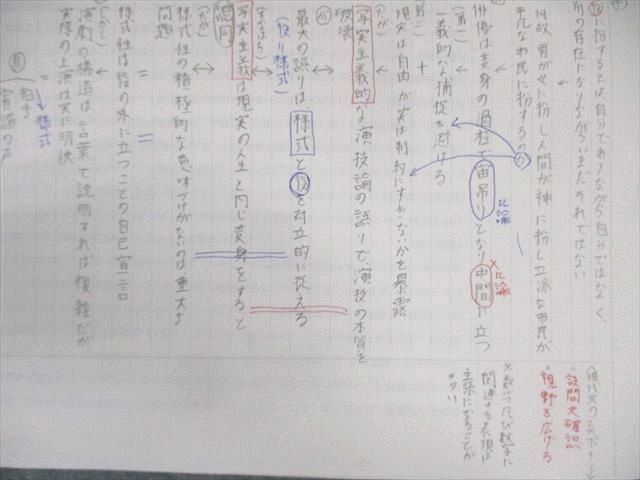 扮するとは、自分でありながら自分ではなく、
別の存在になりながらいまだそれではない
何故、男が女に扮し人間が神に扮し立派な市民が
平凡な市民に扮するのか
俳優は変身の過程で宙吊りとなり中間に立つ
比喩
比喩
(第一)
一義的な捕捉を避ける
+
(第二)
現実は自由が実は制約にすぎないかを暴露
(だが)
写実主義的な演技論の誤りで、演技の本質を
破壊
最大の誤りは様式と役を対立的に捉える
(役⇔様式)
(すなわち)
写実主義は現実の人生と同じ変身をすると
混同
(だが)
様式性の積極的な意味づけがないのは重大な
問題
様式性は役の外に立つことの自己宣言
(しかし)
演劇の構造は言葉で説明すれば複雑だが
実際の上演は実に明快
様式
宣誓の声
設問文確認
視野を広げる
関連する表現は
主張になることが
多い